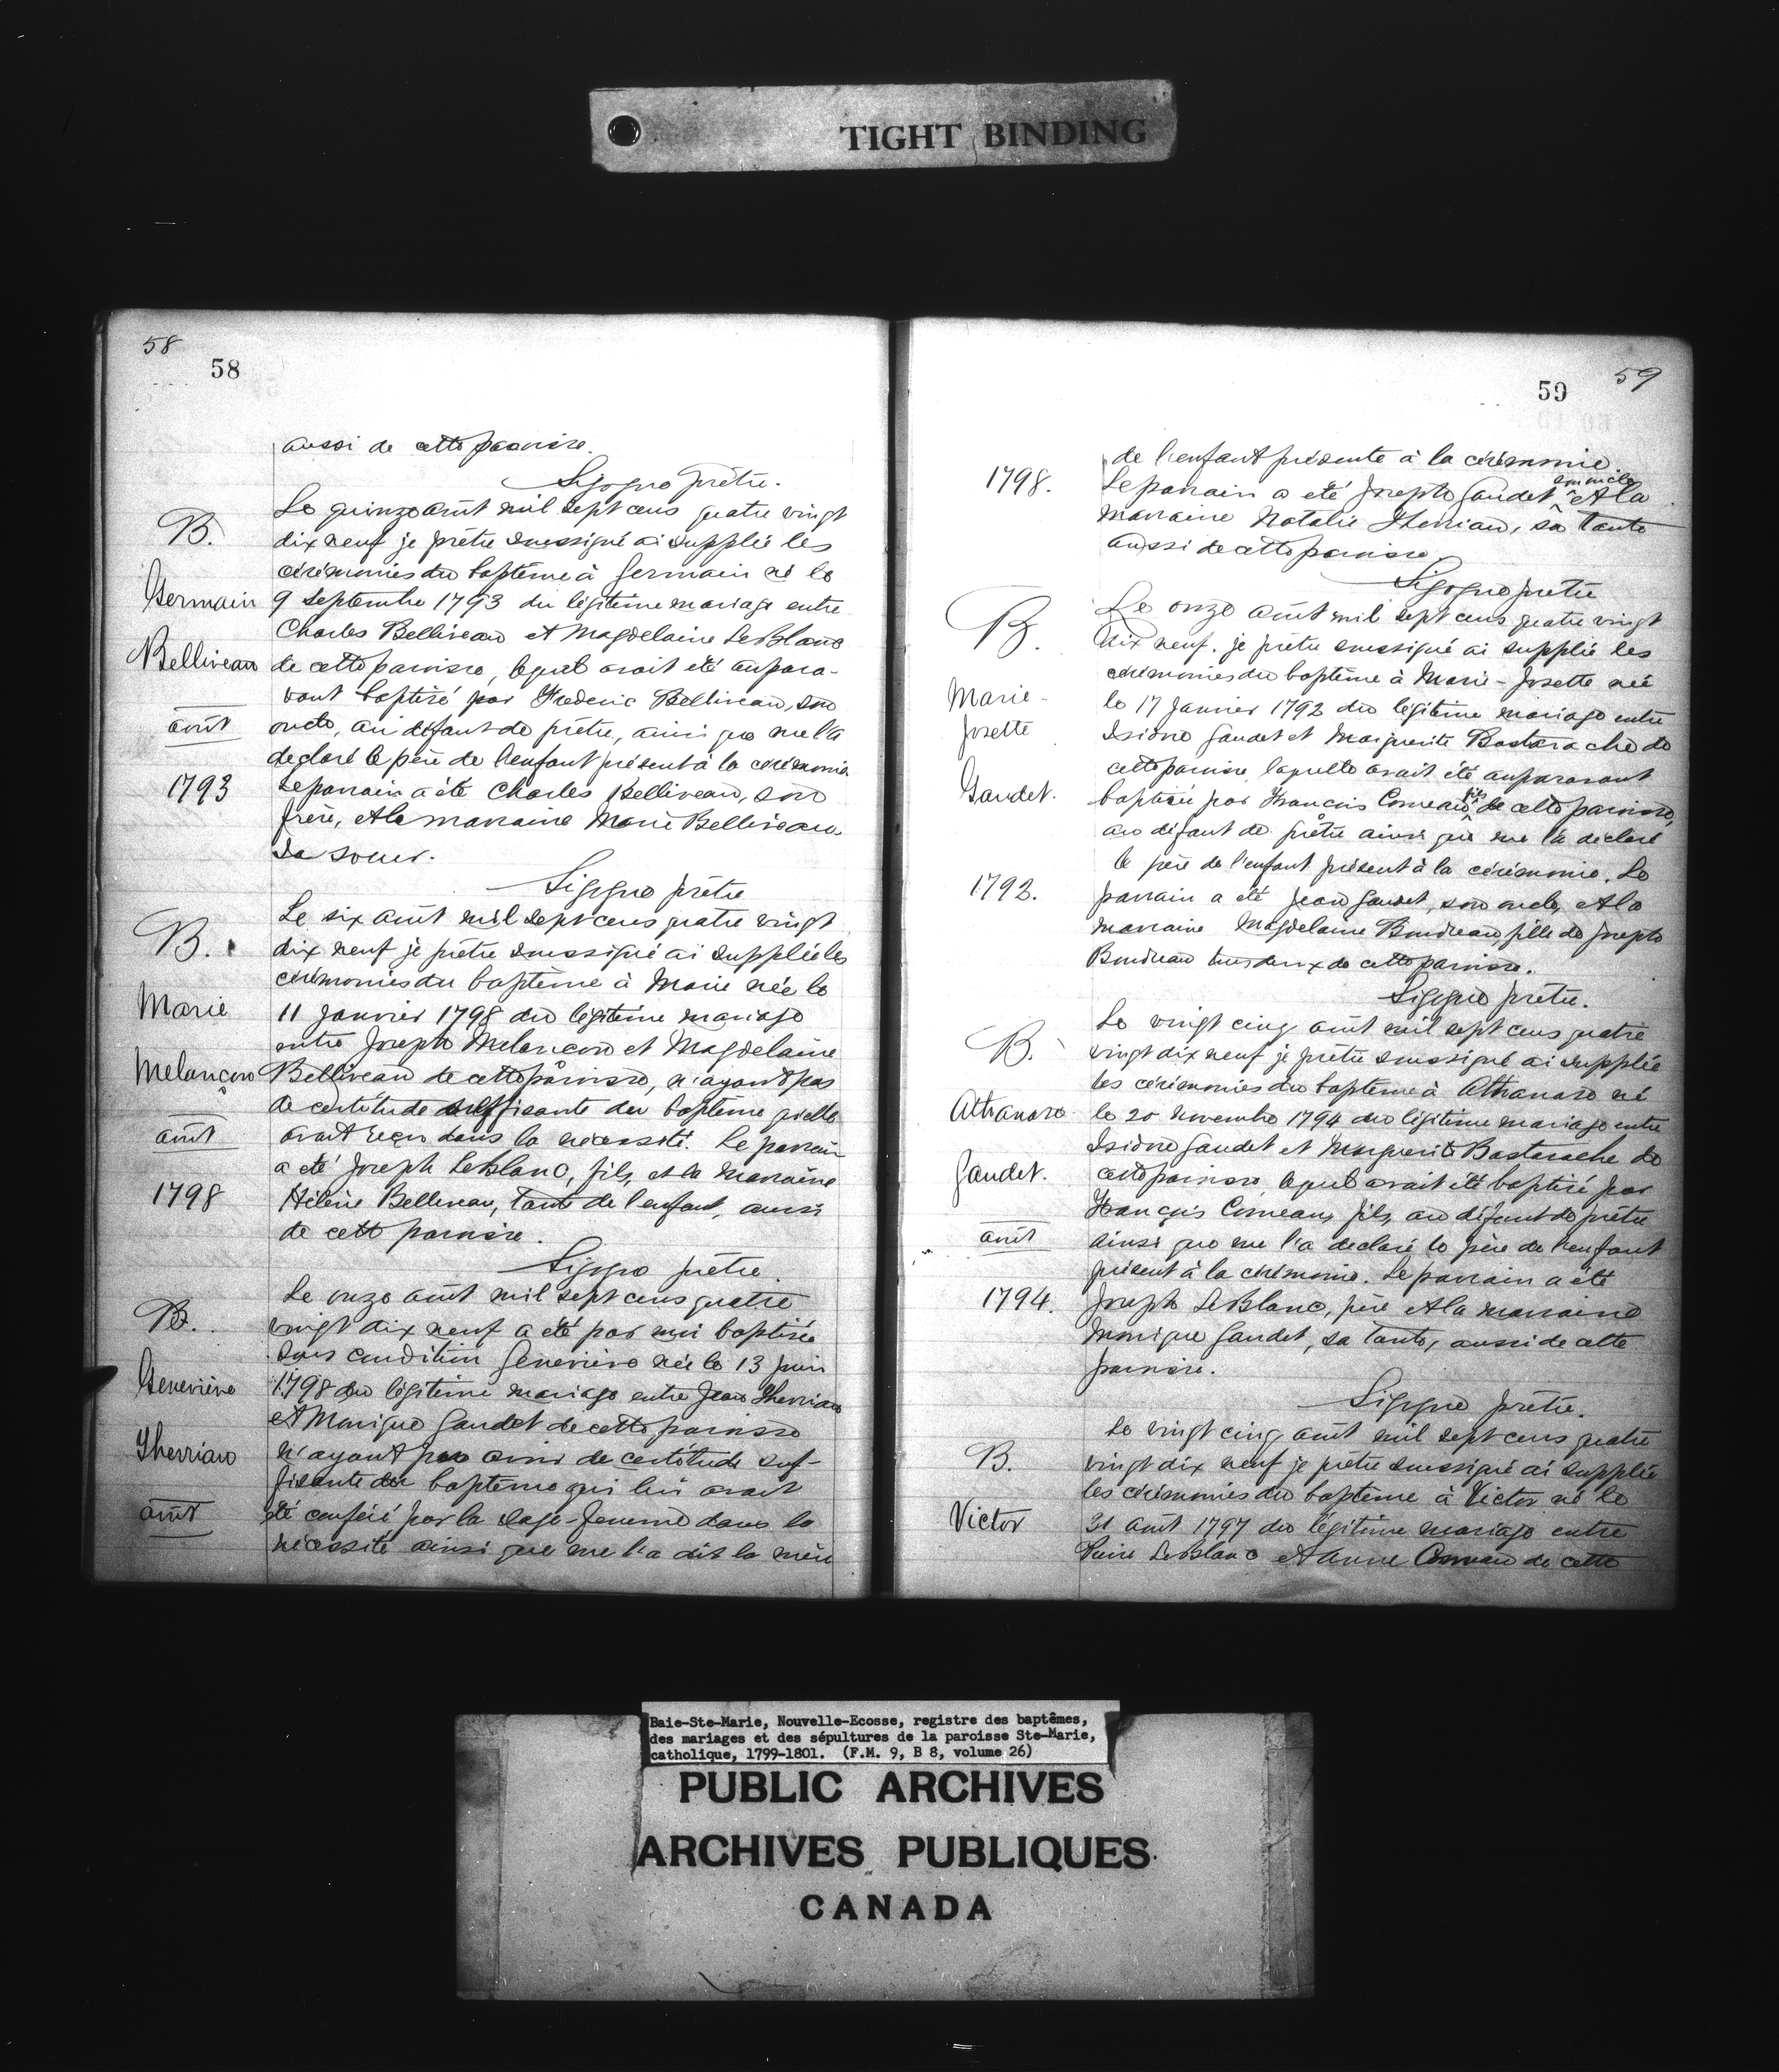 TIGHT BINDING
58
58
aussi de cette paroisse.
Sigogne prêtre.
B.
Germain
Belliveau
août
1793
Le quinze août mil sept cens quatre vingt
dix neuf je prêtre soussigné ai supplée les
cérémonies du baptême à Germain né le
9 Septembre 1793 du légitime mariage entre
Charles Belliveau et Magdelaine LeBlanc
de cette paroisse, lequel avait été aupara-
vant baptisé par Frederic Belliveau, son
oncle, au défaut de prêtre, ainsi que me l'a
déclaré le père de l'enfant présent à la cérémonie
Le parrain a été Charles Belliveau, son
frère, et la marraine Marie Belliveau
sa soeur.
Sigogne prêtre
B.
Marie
Melançon
août
1798
Le six août mil sept cens quatre vingt
dix neuf je prêtre soussigné ai supplée les
cérémonies du baptême à Marie née le
11 Janvier 1798 du légitime mariage
entre Joseph Melancon et Magdelaine
Belliveau de cette paroisse, n'ayant pas
de certitude suffisante du baptême qu'elle
avait reçu dans la nécessité. Le parrain
a été Joseph LeBlanc, fils, et la marraine
Hélène Belliveau, tante de l'enfant, aussi
de cette paroisse.
Sigogne prêtre.
B.
Geneviève
Therriau
août
Le onze août mil sept cens quatre
vingt dix neuf a été par moi baptisée
sous condition Geneviève née le 13 juin
1798 du légitime mariage entre Jean Therriau
et Monique Gaudet de cette paroisse
n'ayant pas de certitude suf-
fisante du baptême qui lui avait
été conféré par la sage-femme dans la
nécessité ainsi que me l'a dit la mère
59
59
1798.
de l'enfant présente à la cérémonie.
Le parrain a eté Joseph Gaudet son oncle et la
marraine Natalie Therriau, sa tante
aussi de cette paroisse.
Sigogne prêtre
B.
Marie-
Josette
Gaudet.
1792.
Le onze août mil sept cens quatre vingt
dix neuf. je prêtre soussigné ai supplée les
cérémonies du baptême à Marie-Josette née
le 17 Janvier 1792 du légitime mariage entre
Isidore Gaudet et Marguerite Bastarache de
cette paroisse, laquelle avait été auparavant
baptisée par François Comeau fils de cette paroisse,
au défaut de prêtre ainsi que me l'a déclaré
le père de l'enfant présent à la cérémonie. Le
parrain a été Jean Gaudet, son oncle, et la
marraine Magdelaine Boudreau, fille de Joseph
Boudreau tous deux de cette paroisse.
Sigogne prêtre.
B.
Athanase
Gaudet.
août
1794.
Le vingt cinq août mil sept cens quatre
vingt dix neuf je prêtre soussigné ai supplée
les cérémonies du baptême à Athanase né
le 20 novembre 1794 du légitime mariage entre
Isidore Gaudet et Marguerite Bastarache de
cette paroisse, lequel avait été baptisé par
François Comeau, fils, au défaut de prêtre
ainsi que me l'a déclaré le père de l'enfant
présent à la cérémonie. Le parrain a été
Joseph LeBlanc, père et la marraine
Monique Gaudet, sa tante, aussi de cette
paroisse.
Sigogne prêtre.
B.
Victor
Le vingt cinq août mil sept cens quatre
vingt dix neuf je prêtre soussigné ai supplée
les cérémonies du baptême à Victor né le
31 août 1797 du légitime mariage entre
Pierre LeBlanc et Anne Comeau de cette
Baie-Ste-Marie, Nouvelle-Ecosse, registre des baptêmes,
des mariages et des sépultures de la paroisse Ste-Marie,
catholique, 1799-1801. (F.M. 9, B 8, volume 26)
PUBLIC ARCHIVES
ARCHIVES PUBLIQUES
CANADA